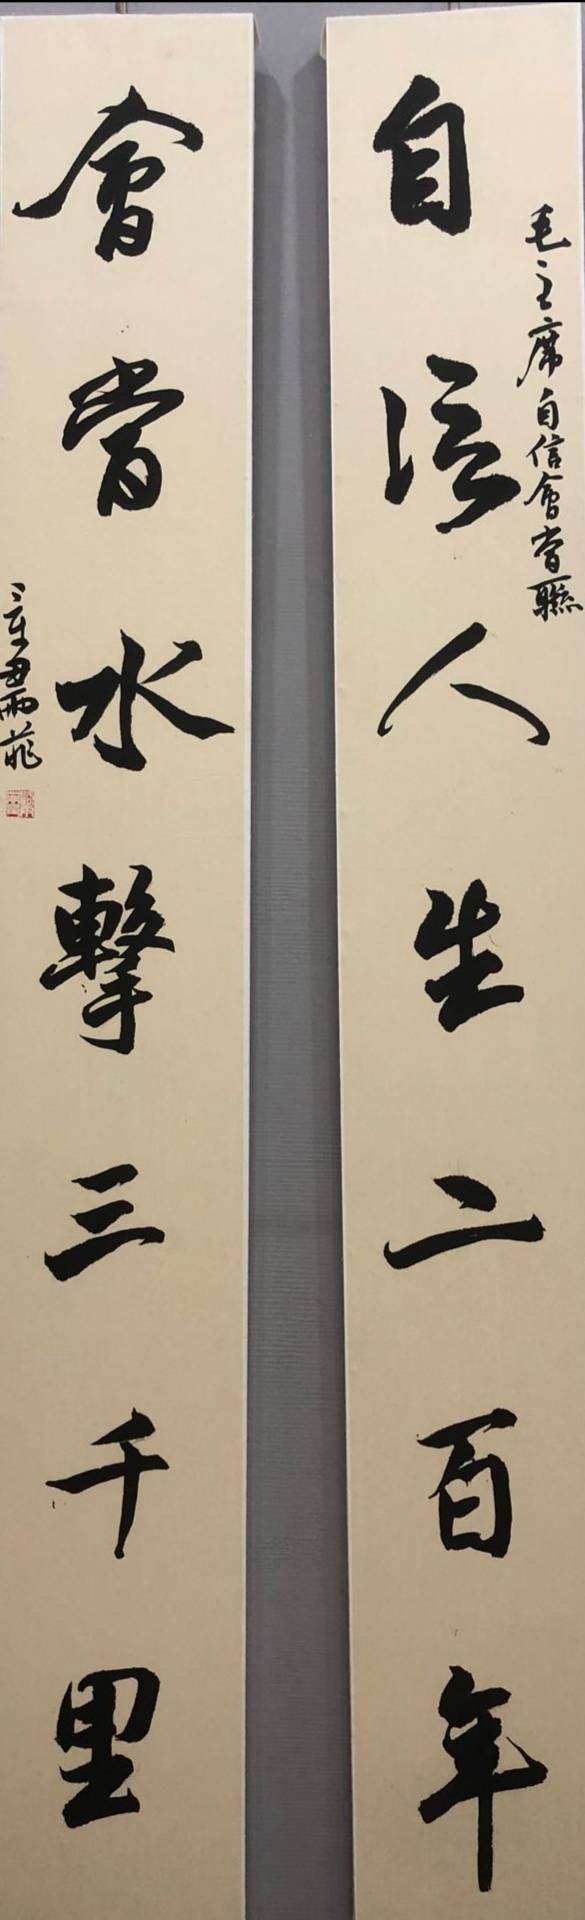 毛主席自信會當聯
自信人生二百年
會當水擊三千里